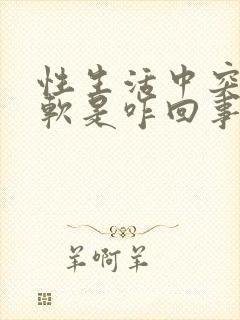 性生活中突
软是咋回事
羊啊羊